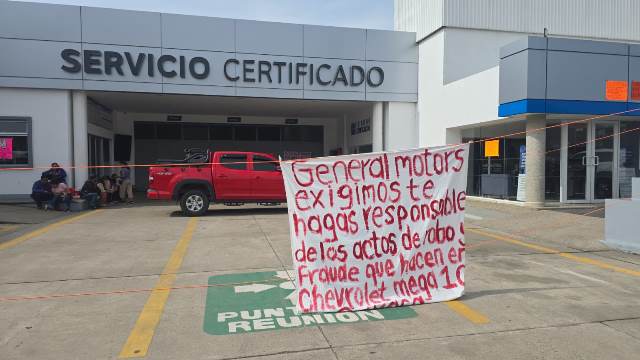 SERVICIO CERTIFICADO
General Motors
exigimos te
hagas responsable
de los actos de robo y
Fraude que hacen en
Chevrolet mega 1.0
PUNTO
REUNIÓN